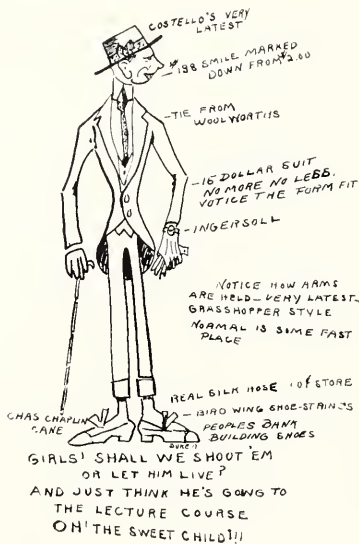 COSTELLO'S VERY
LATEST
$198 SMILE MARKED
DOWN FROM $2.00
-TIE FROM
WOOLWORTHS
-15 DOLLAR SUIT
NO MORE NO LESS.
NOTICE THE FORM FIT
-INGERSOLL
NOTICE HOW ARMS
ARE HELD-VERY LATEST-
GRASSHOPPER STYLE
NORMAL IS SOME FAST
PLACE
REAL SILK HOSE 10¢ STORE
-BIRD WING SHOE-STRINGS
PEOPLES BANK
BUILDING SHOES
CHAS CHAPLIN
CANE
DUKE
GIRLS! SHALL WE SHOUT 'EM
OR LET HIM LIVE?
AND JUST THINK HE'S GOING TO
THE LECTURE COURSE
OH! THE SWEET CHILD!!!